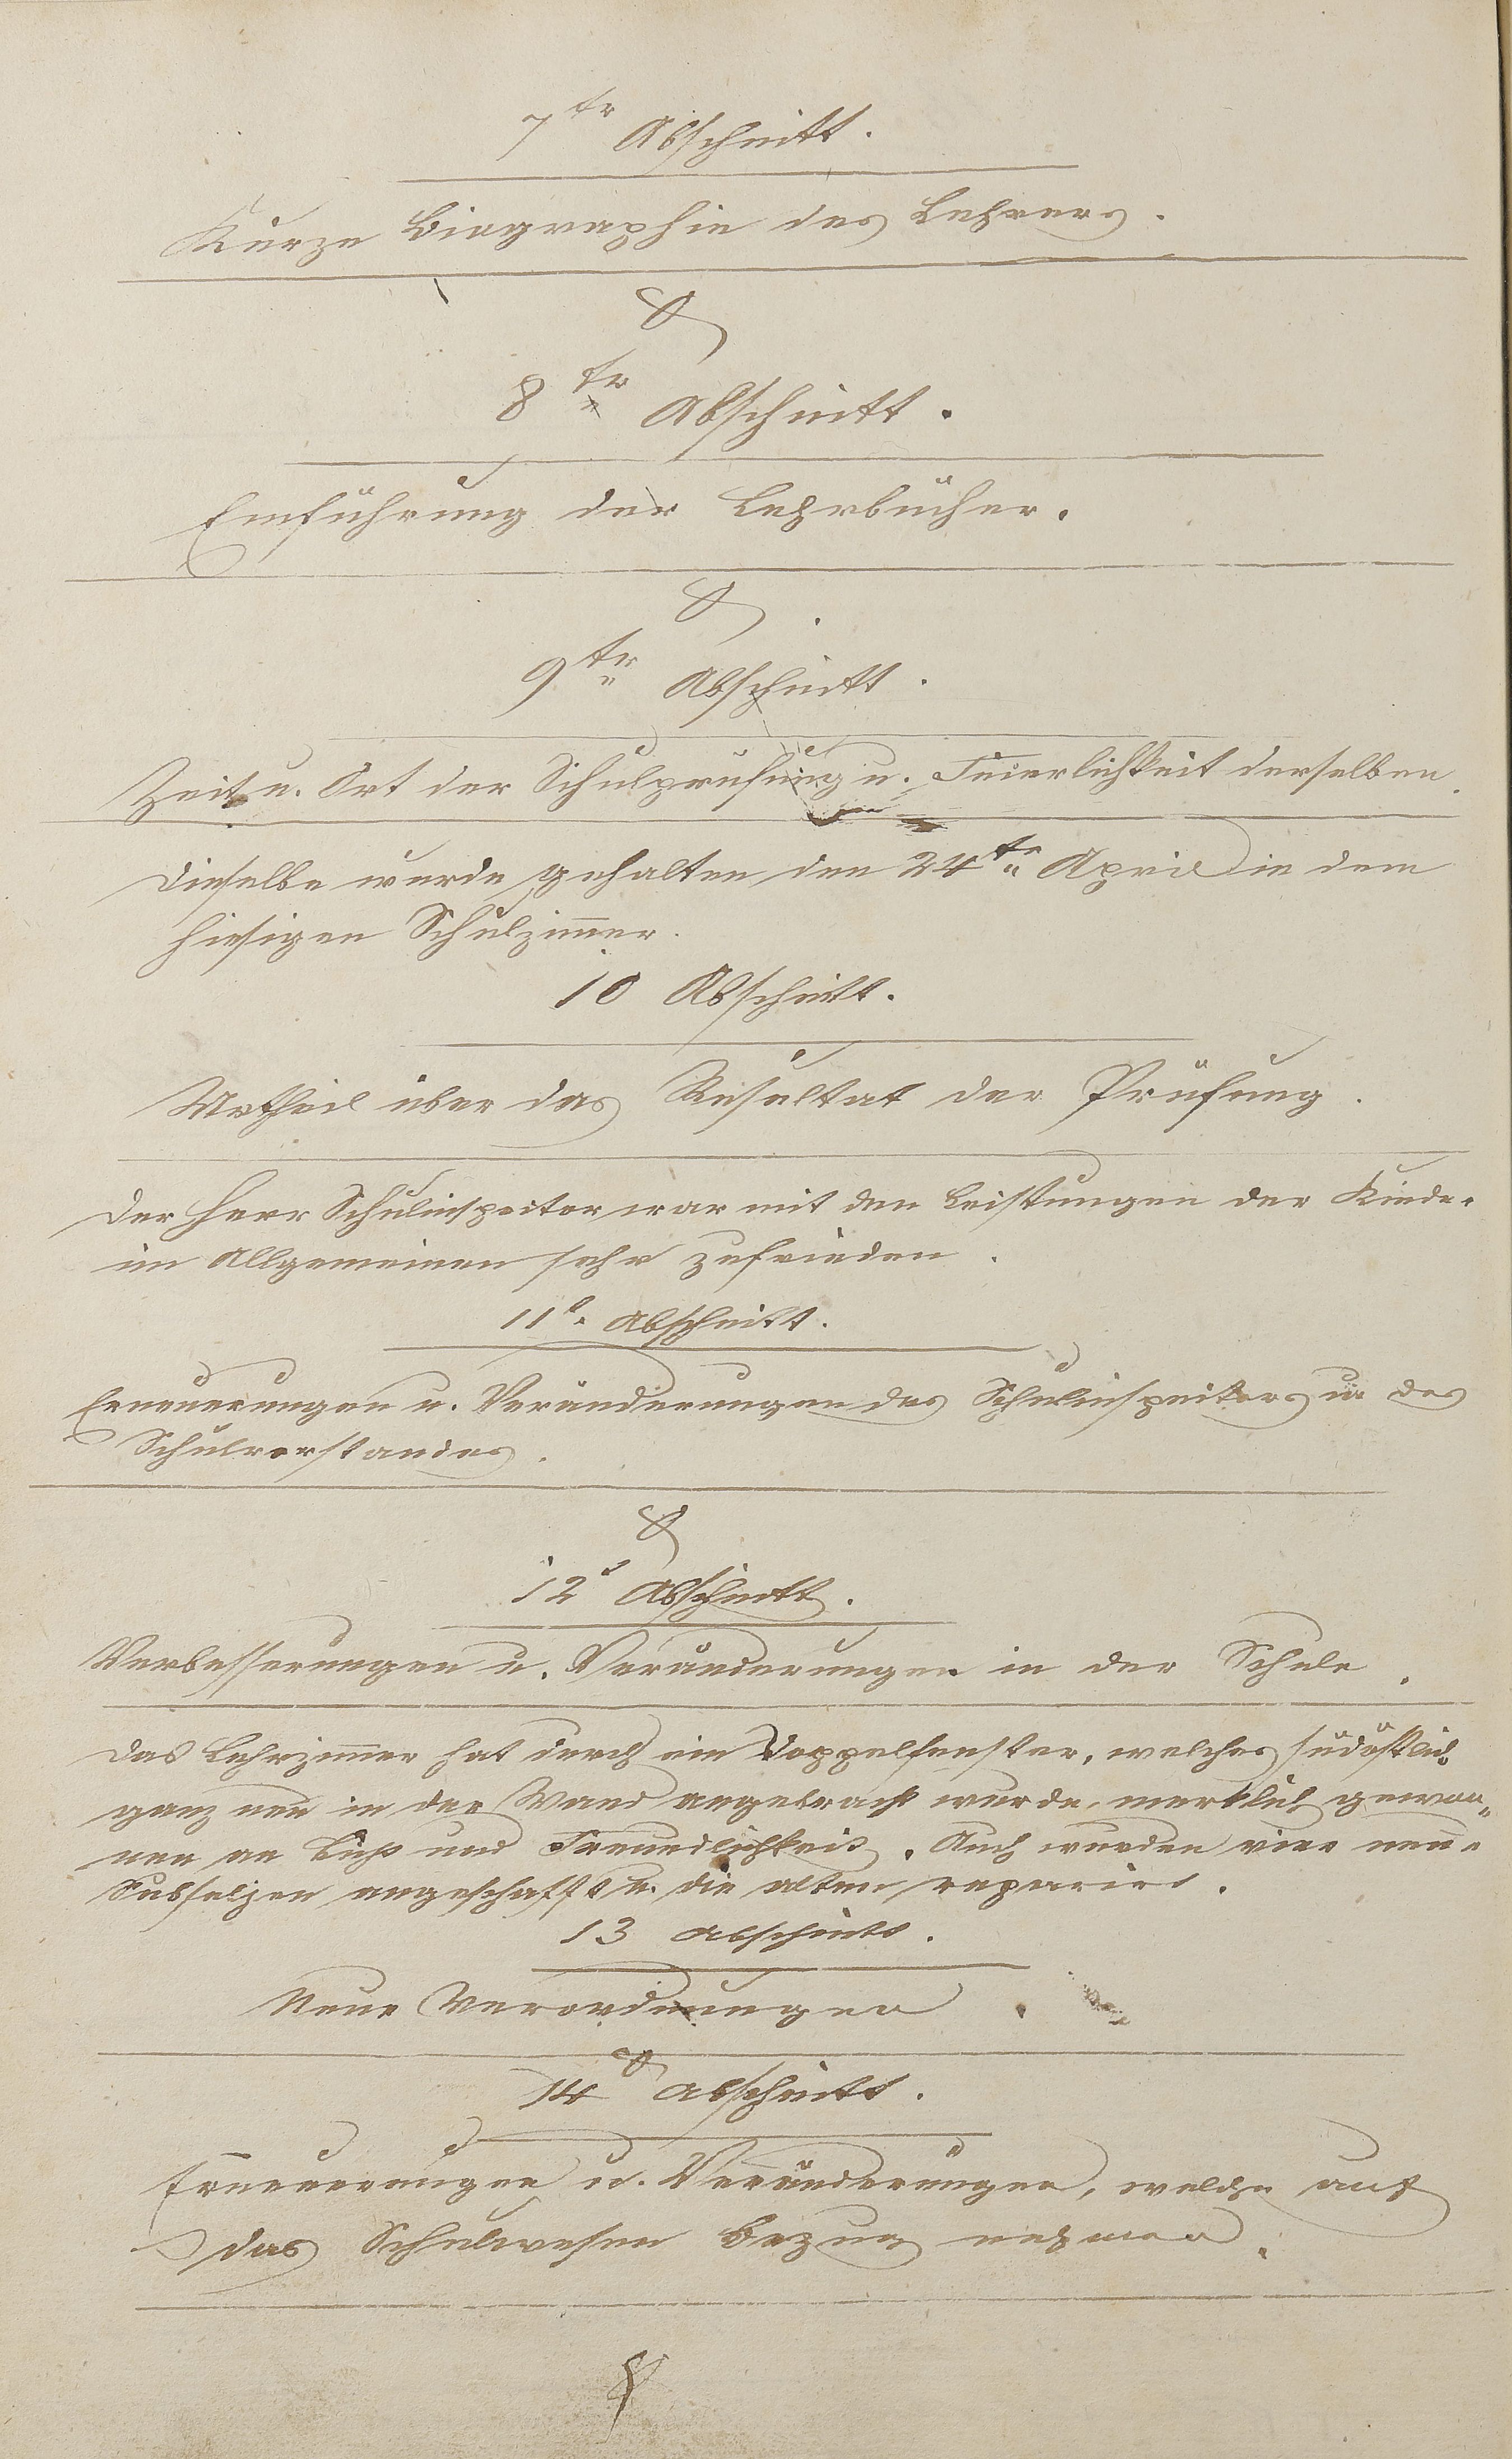 7ter Abschnitt.
Kurze Biographie des Lehrers.
8ter Abschnitt.
Einführung der Lehrbücher.
9ter Abschnitt.
Zeit u. Ort der Schulprüfung u. Feierlichkeit derselben.
Dieselbe wurde gehalten den 24ten April in dem
hiesigen Schulzim̄er.
10 Abschnitt.
Urtheil über das Resultat der Prüfung.
Der Herr Schulinspector war mit den Leistungen der Kinder
im Allgemeinen sehr zufrieden.
11t. Abschnitt.
Erneuerungen u. Veränderungen des Schulinspectors u. des
Schulvorstandes.
12t Abschnitt.
Verbesserungen u. Veränderungen in der Schule.
Das Lehrzim̄er hat durch ein Doppelfenster, welches südöstlich
ganz neu in der Wand angebracht wurde, merklich gewon-
nen an Licht und Freundlichkeit. Auch wurden vier neue
Subselien angeschafft u. die alten reparirt.
13 Abschnitt.
Neue Verordnungen.
14 Abschnitt.
Erneuerungen u. Veränderungen, welche auf
das Schulwesen Bezug nehmen.